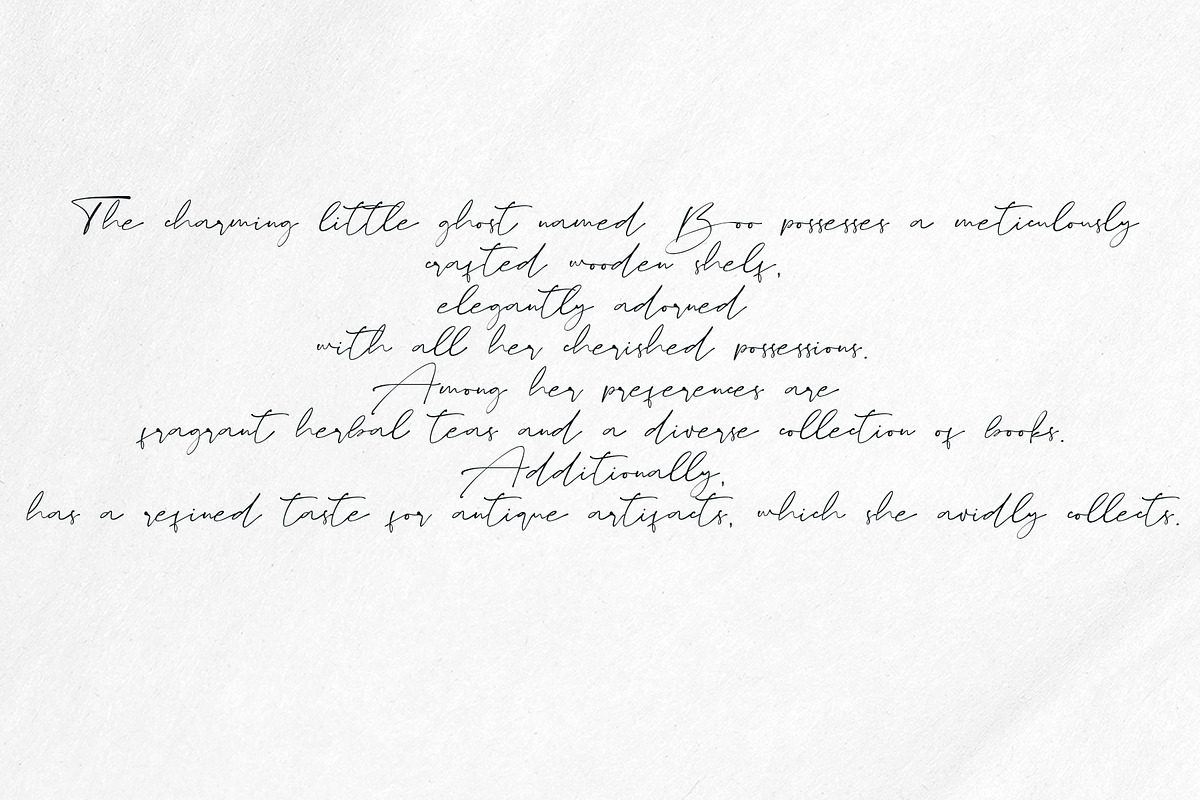 The charming little ghost named Boo possesses a meticulously
crafted wooden shelf,
elegantly adorned
with all her cherished possessions.
Among her preferences are
fragrant herbal teas and a diverse collection of books.
Additionally,
has a refined taste for antique artifacts, which she avidly collects.